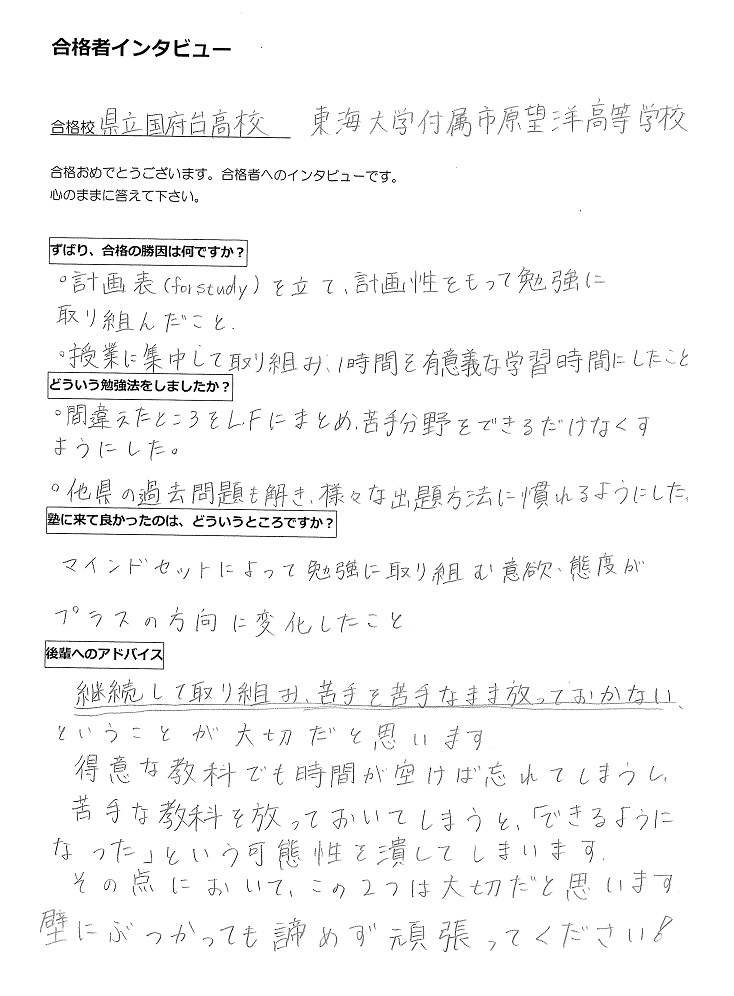 合格者インタビュー
合格校 県立国府台高校 東海大学付属市原望洋高等学校
合格おめでとうございます。合格者へのインタビューです。
心のままに答えて下さい。
ずばり、合格の勝因は何ですか？
○計画表(for study)を立て、計画性をもって勉強に
取り組んだこと.
○授業に集中して取り組み、1時間を有意義な学習時間にしたこと
どういう勉強法をしましたか？
○間違えたところをL.Fにまとめ、苦手分野をできるだけなくす
ようにした。
○他県の過去問題も解き、様々な出題方法に慣れるようにした、
塾に来て良かったのは、どういうところですか？
マインドセットによって勉強に取り組む意欲、態度が
プラスの方向に変化したこと
後輩へのアドバイス
継続して取り組み、苦手を苦手なまま放っておかない、
ということが大切だと思います
得意な教科でも時間が空けば忘れてしまうし、
苦手な教科を放っておいてしまうと、「できるように
なった」という可能性を潰してしまいます.
その点において、この2つは大切だと思います
壁にぶつかっても諦めず頑張ってください!